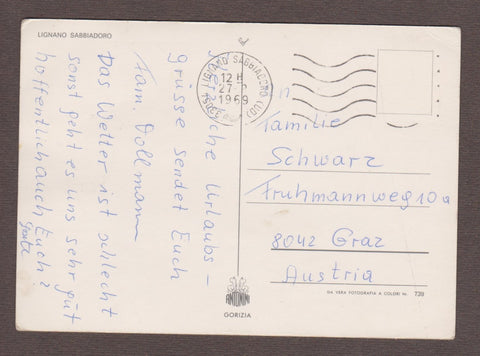 LIGNANO SABBIADORO
Herzliche Urlaubs-
grüsse sendet Euch
Fam. Dollmann
Das Wetter ist schlecht
sonst geht es uns sehr gut
hoffentlich auch Euch?
LIGNANO SABBIADORO (UD)
12 H
27
1969
An
Familie
Schwarz
Fruhmannweg 10a
8042 Graz
Austria
ANTONINI
GORIZIA
DA VERA FOTOGRAFIA A COLORI Nr. 739